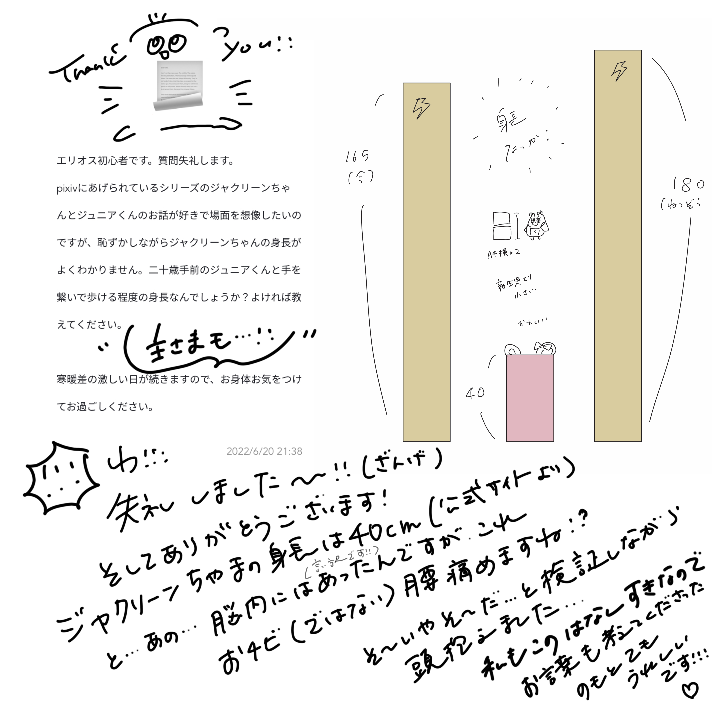 Thank you!!
エリオス初心者です。質問失礼します。
pixivにあげられているシリーズのジャクリーンちゃ
んとジュニアくんのお話が好きで場面を想像したいの
ですが、恥ずかしながらジャクリーンちゃんの身長が
よくわかりません。二十歳手前のジュニアくんと手を
繋いで歩ける程度の身長なんでしょうか？よければ教
えてください。
"(主さまも…!!)"
寒暖差の激しい日が続きますので、お身体お気をつけ
てお過ごしください。
2022/6/20 21:38
165
180
身長
40
わ!!!
失礼しました〜!!(ざんげ)
そしてありがとうございます!
ジャクリーンちゃまの身長は40cm(公式サイトより)
と…あの…脳内にはあったんですが、これ
おチビ(ではない)腰痛めますね!?
そ〜いやそ〜だ…と検証しながら
頭抱えました…
私もこのはなしすきなので
お言葉も添えてくださった
のもとても
うれしい
です!!!